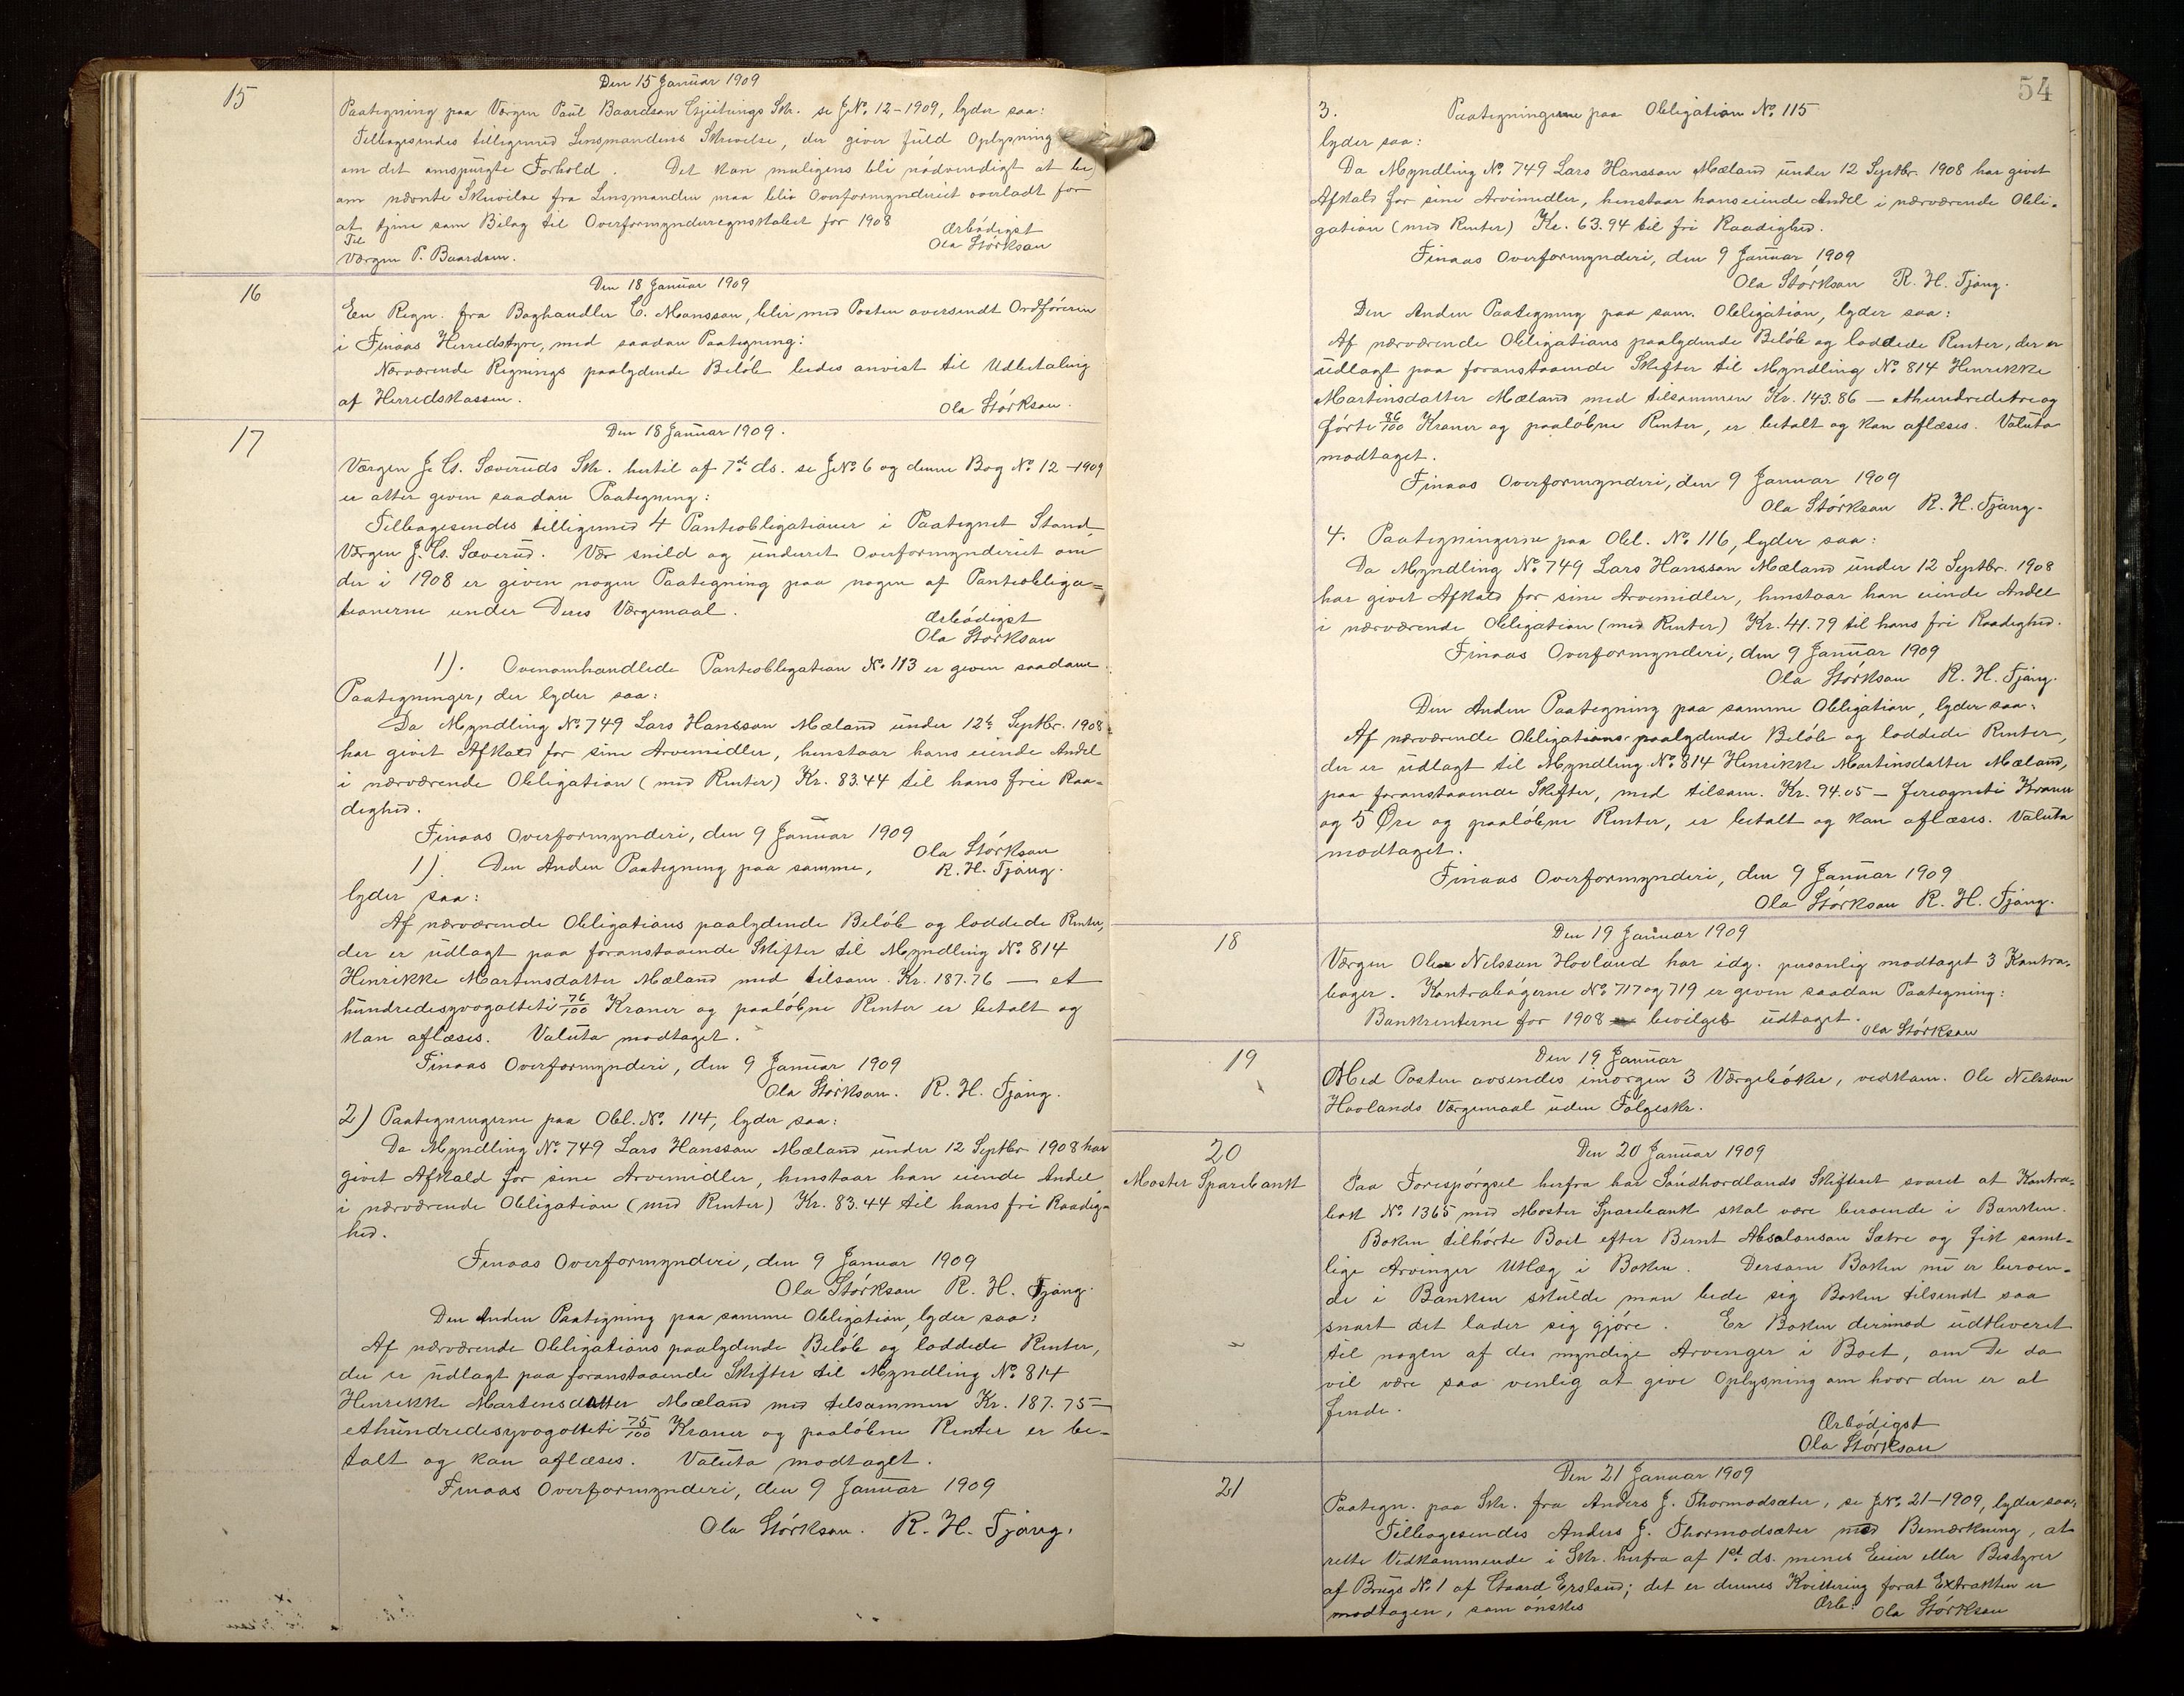 15
Den 15 Januar 1909
Paategning paa Værgen Paul Baardson Gjeitungs Skr. se J.No. 12-1909, lyder saa:
Tilbagesendes tilligemed Lensmandens Skrivelse, der giver fuld Oplysning
om det omspurgte Forhold. Det kan muligens bli nödvendigt at
om nævnte Skrivelse fra Lensmanden maa bliv Overformynderiet overladt for
at tjene som Bilag til Overformynderregnskabet for 1908
Ærbödigst
Til
Ola Störkson
Værgen P. Baardsen.
16
Den 18 Januar 1909
En Regn. fra Boghandler C. Monsson, blir med Posten oversendt Ordföreren
i Finaas Herredstyre, med saadan Paategning:
Nærværende Regnings paalydende Belöb bedes anvist til Udbetaling
af Herredskassen.
Ola Störkson.
17
Den 18 Januar 1909.
Værgen J. G. Sæveruds Skr. hertil af 7de ds. se J.No 6 og denne Bog No. 12-1909
er atter given saadan Paategning:
Tilbagesendes tilligemed 4 Panteobligationer i Paategnet Stand
Værgen J. G. Sæverud. Vær snild og underret Overformynderiet om
der i 1908 er given nogen Paategning paa nogen af Panteobliga=
tionerne under Deres Værgemaal.
Ærbödigst
Ola Störkson
1). Ovenomhandlede Panteobligation No. 113 er given saadane
Paategninger, der lyder saa:
Da Myndling No. 749 Lars Hansson Mæland under 12te Septbr. 1908
har givet Afkald for sine Arvemidler, henstaar hans eiende Andel
i nærværende Obligation (med Renter) Kr. 83.44 til hans frie Raa-
dighed.
Finaas Overformynderi, den 9 Januar 1909
Ola Störkson
1). Den Anden Paategning paa samme,
R. H. Tjong.
lyder saa:
Af nærværende Obligations paalydende Belöb og loddede Renter,
der er udlagt paa foranstaaende Skifter til Myndling No. 814
Henrikke Martinsdatter Mæland med tilsam. Kr. 187.76 — et
hundredesyvogotteti 76/100 Kroner og paalöbne Renter er betalt og
kan aflæses. Valuta modtaget.
Finaas Overformynderi, den 9 Januar 1909
Ola Störkson. R. H. Tjong.
2) Paategningerne paa Obl. No. 114, lyder saa:
Da Myndling No. 749 Lars Hansson Mæland under 12 Septbr. 1908 har
givet Afkald for sine Arvemidler, henstaar han eiende Andel
i nærværende Obligation (med Renter) Kr. 83.44 til hans fri Raadig-
hed.
Finaas Overformynderi, den 9 Januar 1909
Ola Störkson R. H. Tjong.
Den Anden Paategning paa samme Obligation, lyder saa:
Af nærværende Obligations paalydende Belöb og loddede Renter,
der er udlagt paa foranstaaende Skifter til Myndling No. 814
Henrikke Martensdatter Mæland med tilsammen Kr. 187.75 —
ethundredesyvogotteti 75/100 Kroner og paalöbne Renter er be-
talt og kan aflæses. Valuta modtaget.
Finaas Overformynderi, den 9 Januar 1909
Ola Störkson. R. H. Tjong.
54
3. Paategningerne paa Obligation No. 115
lyder saa:
Da Myndling No. 749 Lars Hansson Mæland under 12 Septbr. 1908 har givet
Afkald for sine Arvemidler, henstaar hans eiende Andel i nærværende Obli-
gation (med Renter) Kr. 63.94 til fri Raadighed.
Finaas Overformynderi, den 9 Januar 1909
Ola Störkson R. H. Tjong.
Den Anden Paategning paa sam. Obligation, lyder saa:
Af nærværende Obligations paalydende Belöb og loddede Renter, der er
udlagt paa foranstaaende Skifter til Myndling No. 814 Henrikke
Martinsdatter Mæland med tilsammen Kr. 143.86 — ethundredetreog
förti 86/100 Kroner og paalöbne Renter, er betalt og kan aflæses. Valuta
modtaget.
Finaas Overformynderi, den 9 Januar 1909
Ola Störkson R. H. Tjong.
4. Paategningerne paa Obl. No. 116, lyder saa:
Da Myndling No. 749 Lars Hansson Mæland under 12 Septbr. 1908
har givet Afkald for sine Arvemidler, henstaar han eiende Andel
i nærværende Obligation (med Renter) Kr. 41.79 til hans fri Raadighed.
Finaas Overformynderi, den 9 Januar 1909
Ola Störkson R. H. Tjong.
Den Anden Paategning paa samme Obligation, lyder saa:
Af nærværende Obligations paalydende Belöb og loddede Renter,
der er udlagt til Myndling No. 814 Henrikke Martinsdatter Mæland,
paa foranstaaende Skifter, med tilsam. Kr. 94.05 — fireogneti Kroner
og 5 Öre og paalöbne Renter, er betalt og kan aflæses. Valuta
modtaget.
Finaas Overformynderi, den 9 Januar 1909
Ola Störkson R. H. Tjong.
18
Den 19 Januar 1909
Værgen Ole Nilsson Hovland har idg. personlig modtaget 3 Kontra-
böger. Kontrabøgerne No. 717 og 719 er given saadan Paategning:
Bankrenterne for 1908 bevilges udtaget.
Ola Störkson
19
Den 19 Januar
Med Posten avsendes imorgen 3 Værgebøker, vedkom. Ole Nelsson
Hovlands Værgemaal uden Fölgeskr.
20
Moster Sparebank
Den 20 Januar 1909
Paa Forespörgsel herfra har Söndhordlands Skifteret svaret at Kontra-
bok No. 1365 med Moster Sparebank skal være beroende i Banken.
Boken tilhörte Boet efter Bernt Absalonson Sætre og fik samt-
lige Arvinger Utlæg i Boken. Dersom Boken nu er beroen-
de i Banken skulde man bede sig Boken tilsendt saa
snart det lader sig gjöre. Er Boken derimod udtleveret
til nogen af de myndige Arvinger i Boet, om De da
vil være saa venlig at give Oplysning om hvor den er at
finde.
Ærbödigst
Ola Störkson
21
Den 21 Januar 1909
Paategn. paa Skr. fra Anders J. Thormodsæter, se J.No. 21-1909, lyder saa:
Tilbagesendes Anders J. Thormodsæter med Bemærkning, at
rette Vedkommende i Skr. herfra af 1st ds. menes Eier eller Bestyrer
af Brugs No. 1 af Gaard Ersland; det er dennes Kvittering forat Extrakten er
modtagen, som önskes
Ærb. Ola Störkson